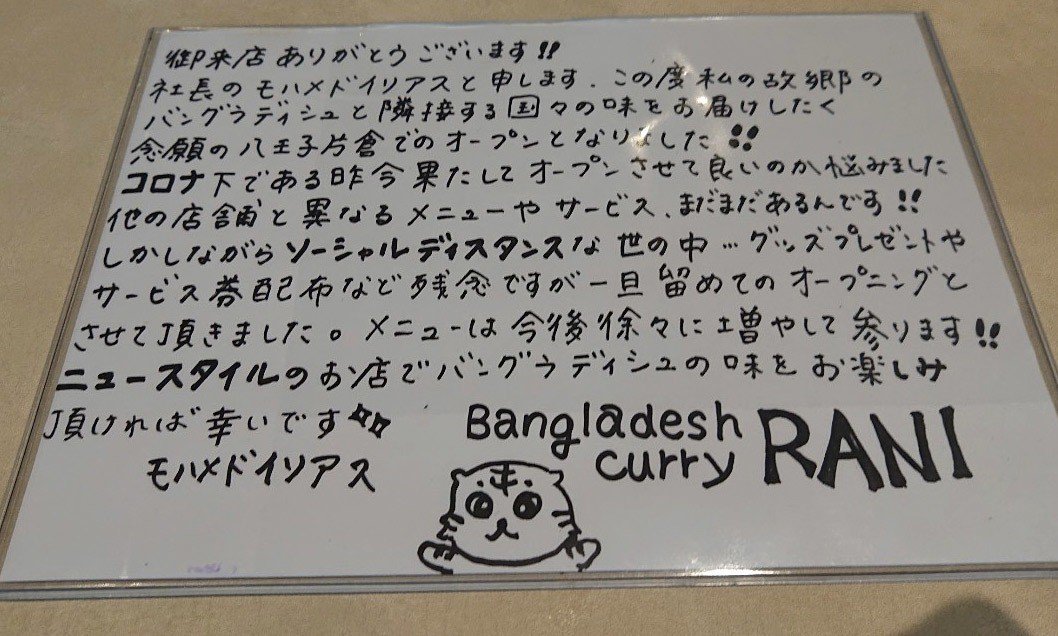 御来店ありがとうございます!!
社長のモハメドイリアスと申します.この度私の故郷の
バングラディシュと隣接する国々の味をお届けしたく
念願の八王子片倉でのオープンとなりました!!
コロナ下である昨今果たしてオープンさせて良いのか悩みました
他の店舗と異なるメニューやサービス、まだまだあるんです!!
しかしながらソーシャルディスタンスな世の中…グッズプレゼントや
サービス券配布など残念ですが一旦留めてのオープニングと
させて頂きました。メニューは今後徐々に増やして参ります!!
ニュースタイルのお店でバングラディシュの味をお楽しみ
頂ければ幸いです
モハメドイリアス
Bangladesh
curry RANI